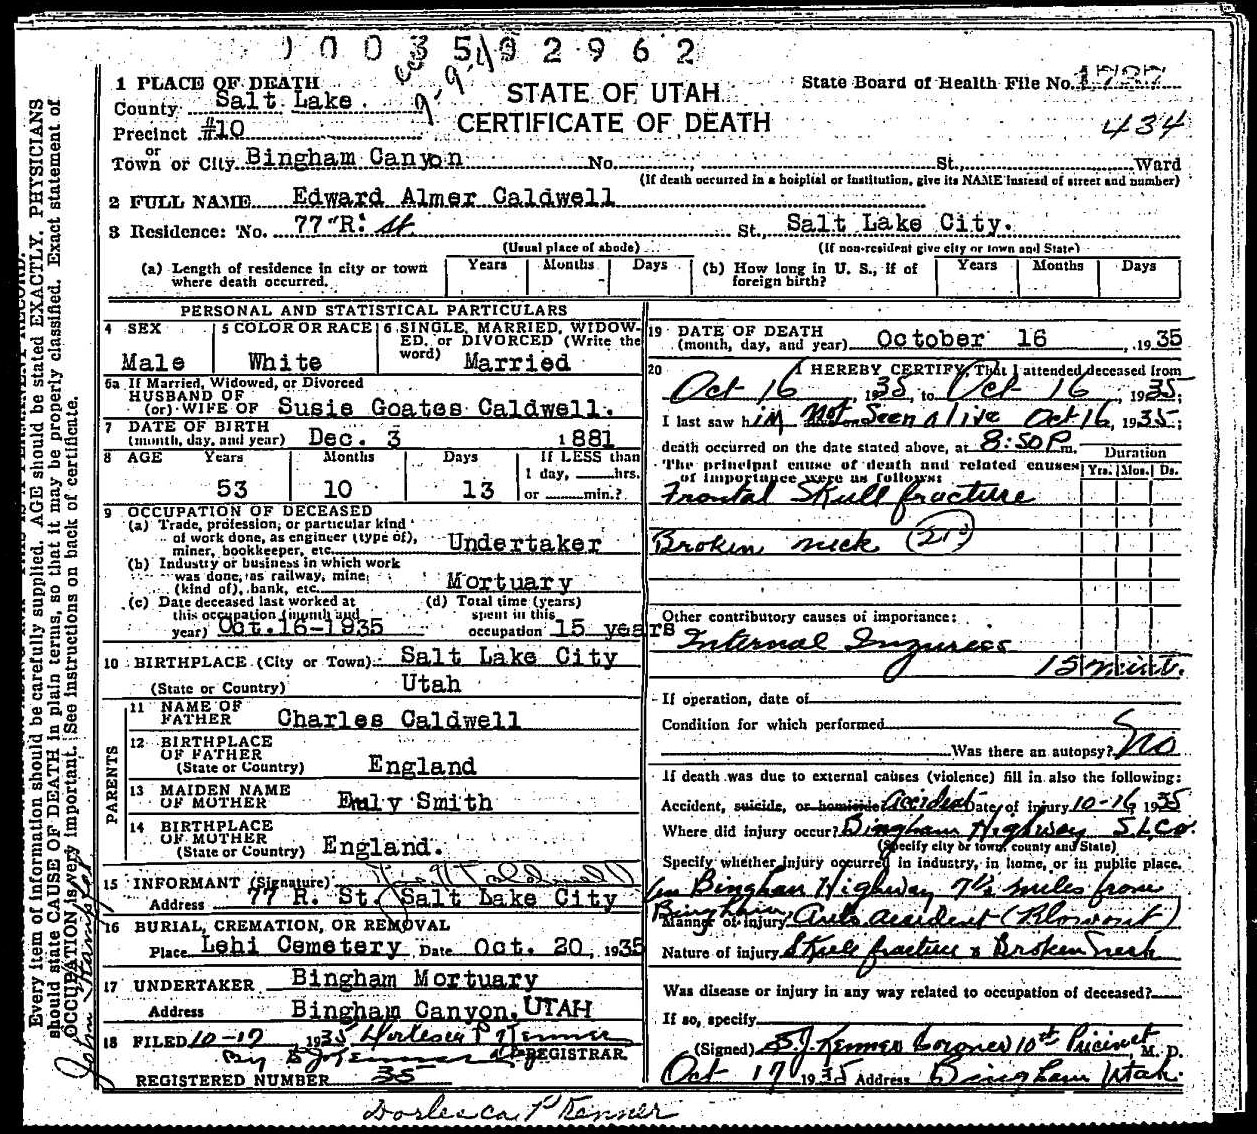 1003502962
STATE OF UTAH
CERTIFICATE OF DEATH
State Board of Health File No. 1737
434
1 PLACE OF DEATH
County Salt Lake
Precinct #10
or
Town or City Bingham Canyon No. St., Ward
(If death occurred in a hospital or institution, give its NAME instead of street and number)
2 FULL NAME Edward Almer Caldwell
3 Residence: No. 77 "R" St. St., Salt Lake City.
(Usual place of abode) (If non-resident give city or town and State)
(a) Length of residence in city or town where death occurred. Years Months Days
(b) How long in U. S., if of foreign birth? Years Months Days
PERSONAL AND STATISTICAL PARTICULARS
4 SEX Male
5 COLOR OR RACE White
6 SINGLE, MARRIED, WIDOWED, or DIVORCED (Write the word) Married
6a If Married, Widowed, or Divorced
HUSBAND OF
(or) WIFE OF Susie Goates Caldwell.
7 DATE OF BIRTH
(month, day, and year) Dec. 3 1881
8 AGE Years Months Days If LESS than
1 day, hrs.
53 10 13 or min.?
9 OCCUPATION OF DECEASED
(a) Trade, profession, or particular kind
of work done, as engineer (type of),
miner, bookkeeper, etc. Undertaker
(b) Industry or business in which work
was done, as railway, mine,
(kind of), bank, etc. Mortuary
(c) Date deceased last worked at
this occupation (month and
year) Oct. 16-1935
(d) Total time (years)
spent in this
occupation 15 years
10 BIRTHPLACE (City or Town) Salt Lake City
(State or Country) Utah
PARENTS
11 NAME OF
FATHER Charles Caldwell
12 BIRTHPLACE
OF FATHER
(State or Country) England
13 MAIDEN NAME
OF MOTHER Emly Smith
14 BIRTHPLACE
OF MOTHER
(State or Country) England.
15 INFORMANT (Signature) Caldwell
Address 77 R. St. Salt Lake City
16 BURIAL, CREMATION, OR REMOVAL
Place Lehi Cemetery Date Oct. 20, 1935
17 UNDERTAKER Bingham Mortuary
Address Bingham Canyon, UTAH
18 FILED 10-17, 1935 Hortesca P Kenner
By S J Kenner REGISTRAR.
REGISTERED NUMBER 35
Dorlesca P Kenner
19 DATE OF DEATH
(month, day, and year) October 16, 1935
20 I HEREBY CERTIFY, That I attended deceased from
Oct 16, 1935, to Oct 16, 1935;
I last saw him Not Seen alive Oct 16, 1935;
death occurred on the date stated above, at 8:50 P.m.
The principal cause of death and related causes
of importance were as follows:
Duration
Yrs. Mos. Ds.
Frontal Skull fracture
Broken neck
Other contributory causes of importance:
Internal Injuries
15 mint.
If operation, date of
Condition for which performed
Was there an autopsy? No
If death was due to external causes (violence) fill in also the following:
Accident, suicide, or homicide accident Date of injury 10-16 1935
Where did injury occur? Bingham Highway S.L.Co.
(Specify city or town, county and State)
Specify whether injury occurred in industry, in home, or in public place.
on Bingham Highway 7½ miles from
Bingham
Manner of injury Auto accident (Blowout)
Nature of injury Skull fracture & Broken neck
Was disease or injury in any way related to occupation of deceased?
If so, specify
(Signed) S. J. Kenner Coroner 10th Pricinct, M. D.
Oct 17 1935 Address Bingham Utah.
Every item of information should be carefully supplied. AGE should be stated EXACTLY. PHYSICIANS
should state CAUSE OF DEATH in plain terms, so that it may be properly classified. Exact statement of
OCCUPATION is very important. See instructions on back of certificate.